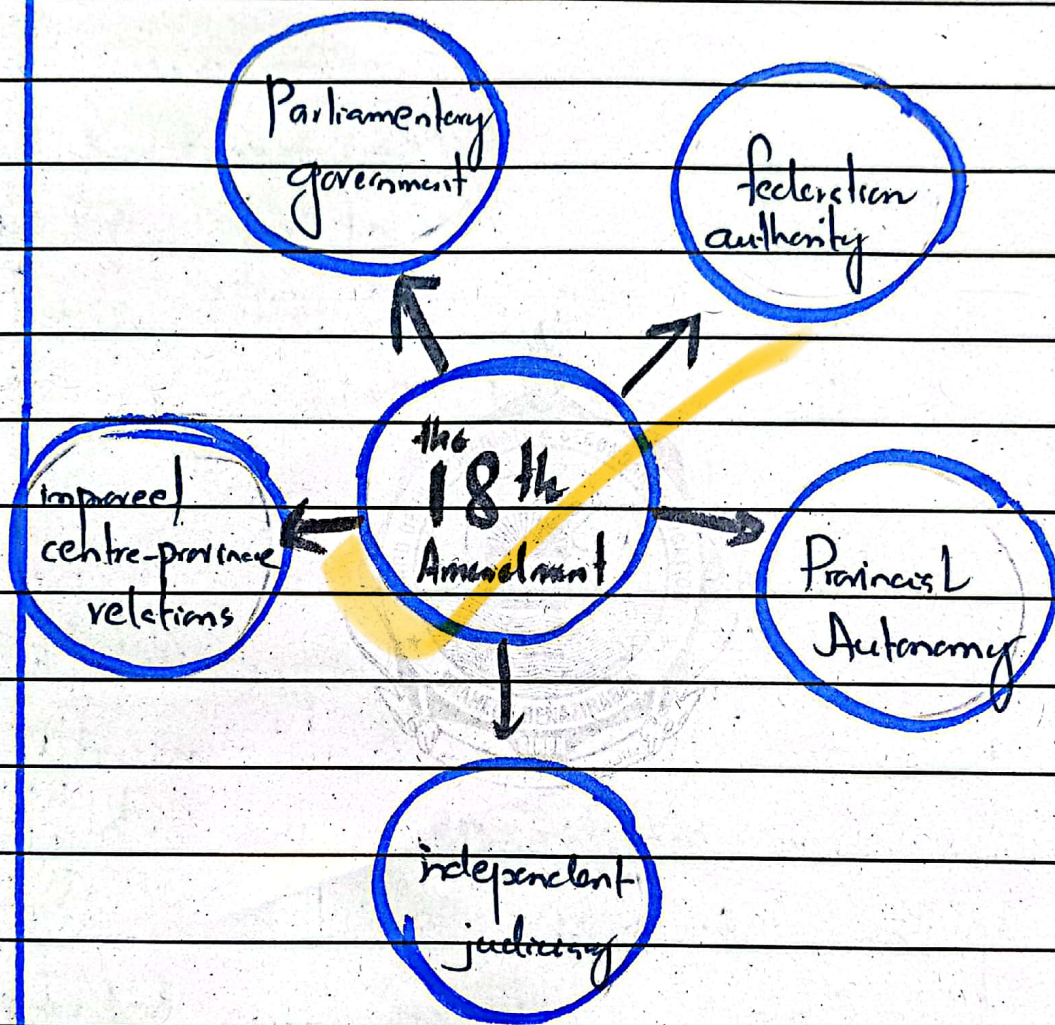 Parliamentary
government
federation
authority
the
18th
Amendment
improved
centre-province
relations
Provincial
Autonomy
independent
judiciary